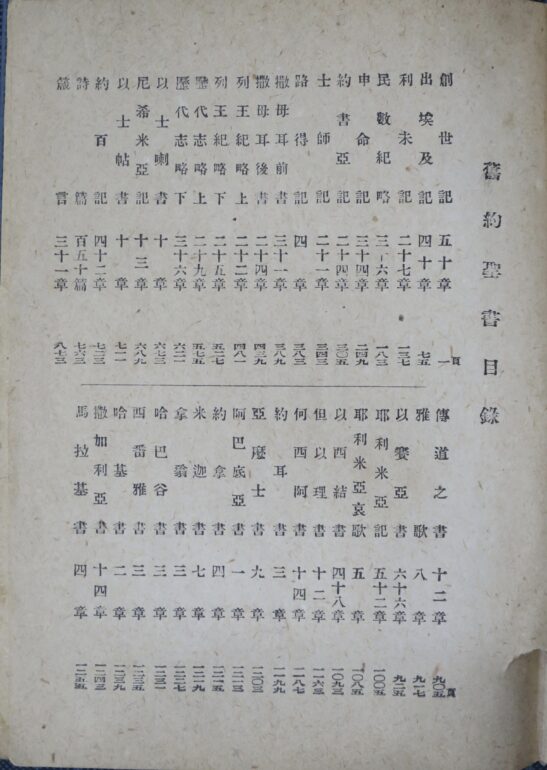 舊約聖書目錄
創世記 五十章 一頁
出埃及記 四十章 七五
利未記 二十七章 一三七
民數紀略 三十六章 一八三
申命記 三十四章 二四九
約書亞記 二十四章 三〇五
士師記 二十一章 三四三
路得記 四章 三八三
撒母耳前書 三十一章 三八九
撒母耳後書 二十四章 四三九
列王紀略上 二十二章 四八一
列王紀略下 二十五章 五二七
歷代志略上 二十九章 五七五
歷代志略下 三十六章 六二一
以士喇書 十章 六七三
尼希米亞記 十三章 六八九
以士帖書 十章 七一一
約百記 四十二章 七二三
詩篇 百五十篇 七六三
箴言 三十一章 八七三
傳道之書 十二章 九〇五頁
雅歌 八章 九一七
以賽亞書 六十六章 九二五
耶利米亞記 五十二章 一〇〇五
耶利米亞哀歌 五章 一〇八五
以西結書 四十八章 一〇九三
但以理書 十二章 一一六三
何西阿書 十四章 一一八七
約耳書 三章 一一九九
亞麼士書 九章 一二〇三
阿巴底亞書 一章 一二一三
約拿書 四章 一二一五
米迦書 七章 一二一九
拿翁書 三章 一二二七
哈巴谷書 三章 一二三一
西番雅書 三章 一二三五
哈基書 二章 一二三九
撒加利亞書 十四章 一二四三
馬拉基書 四章 一二五五